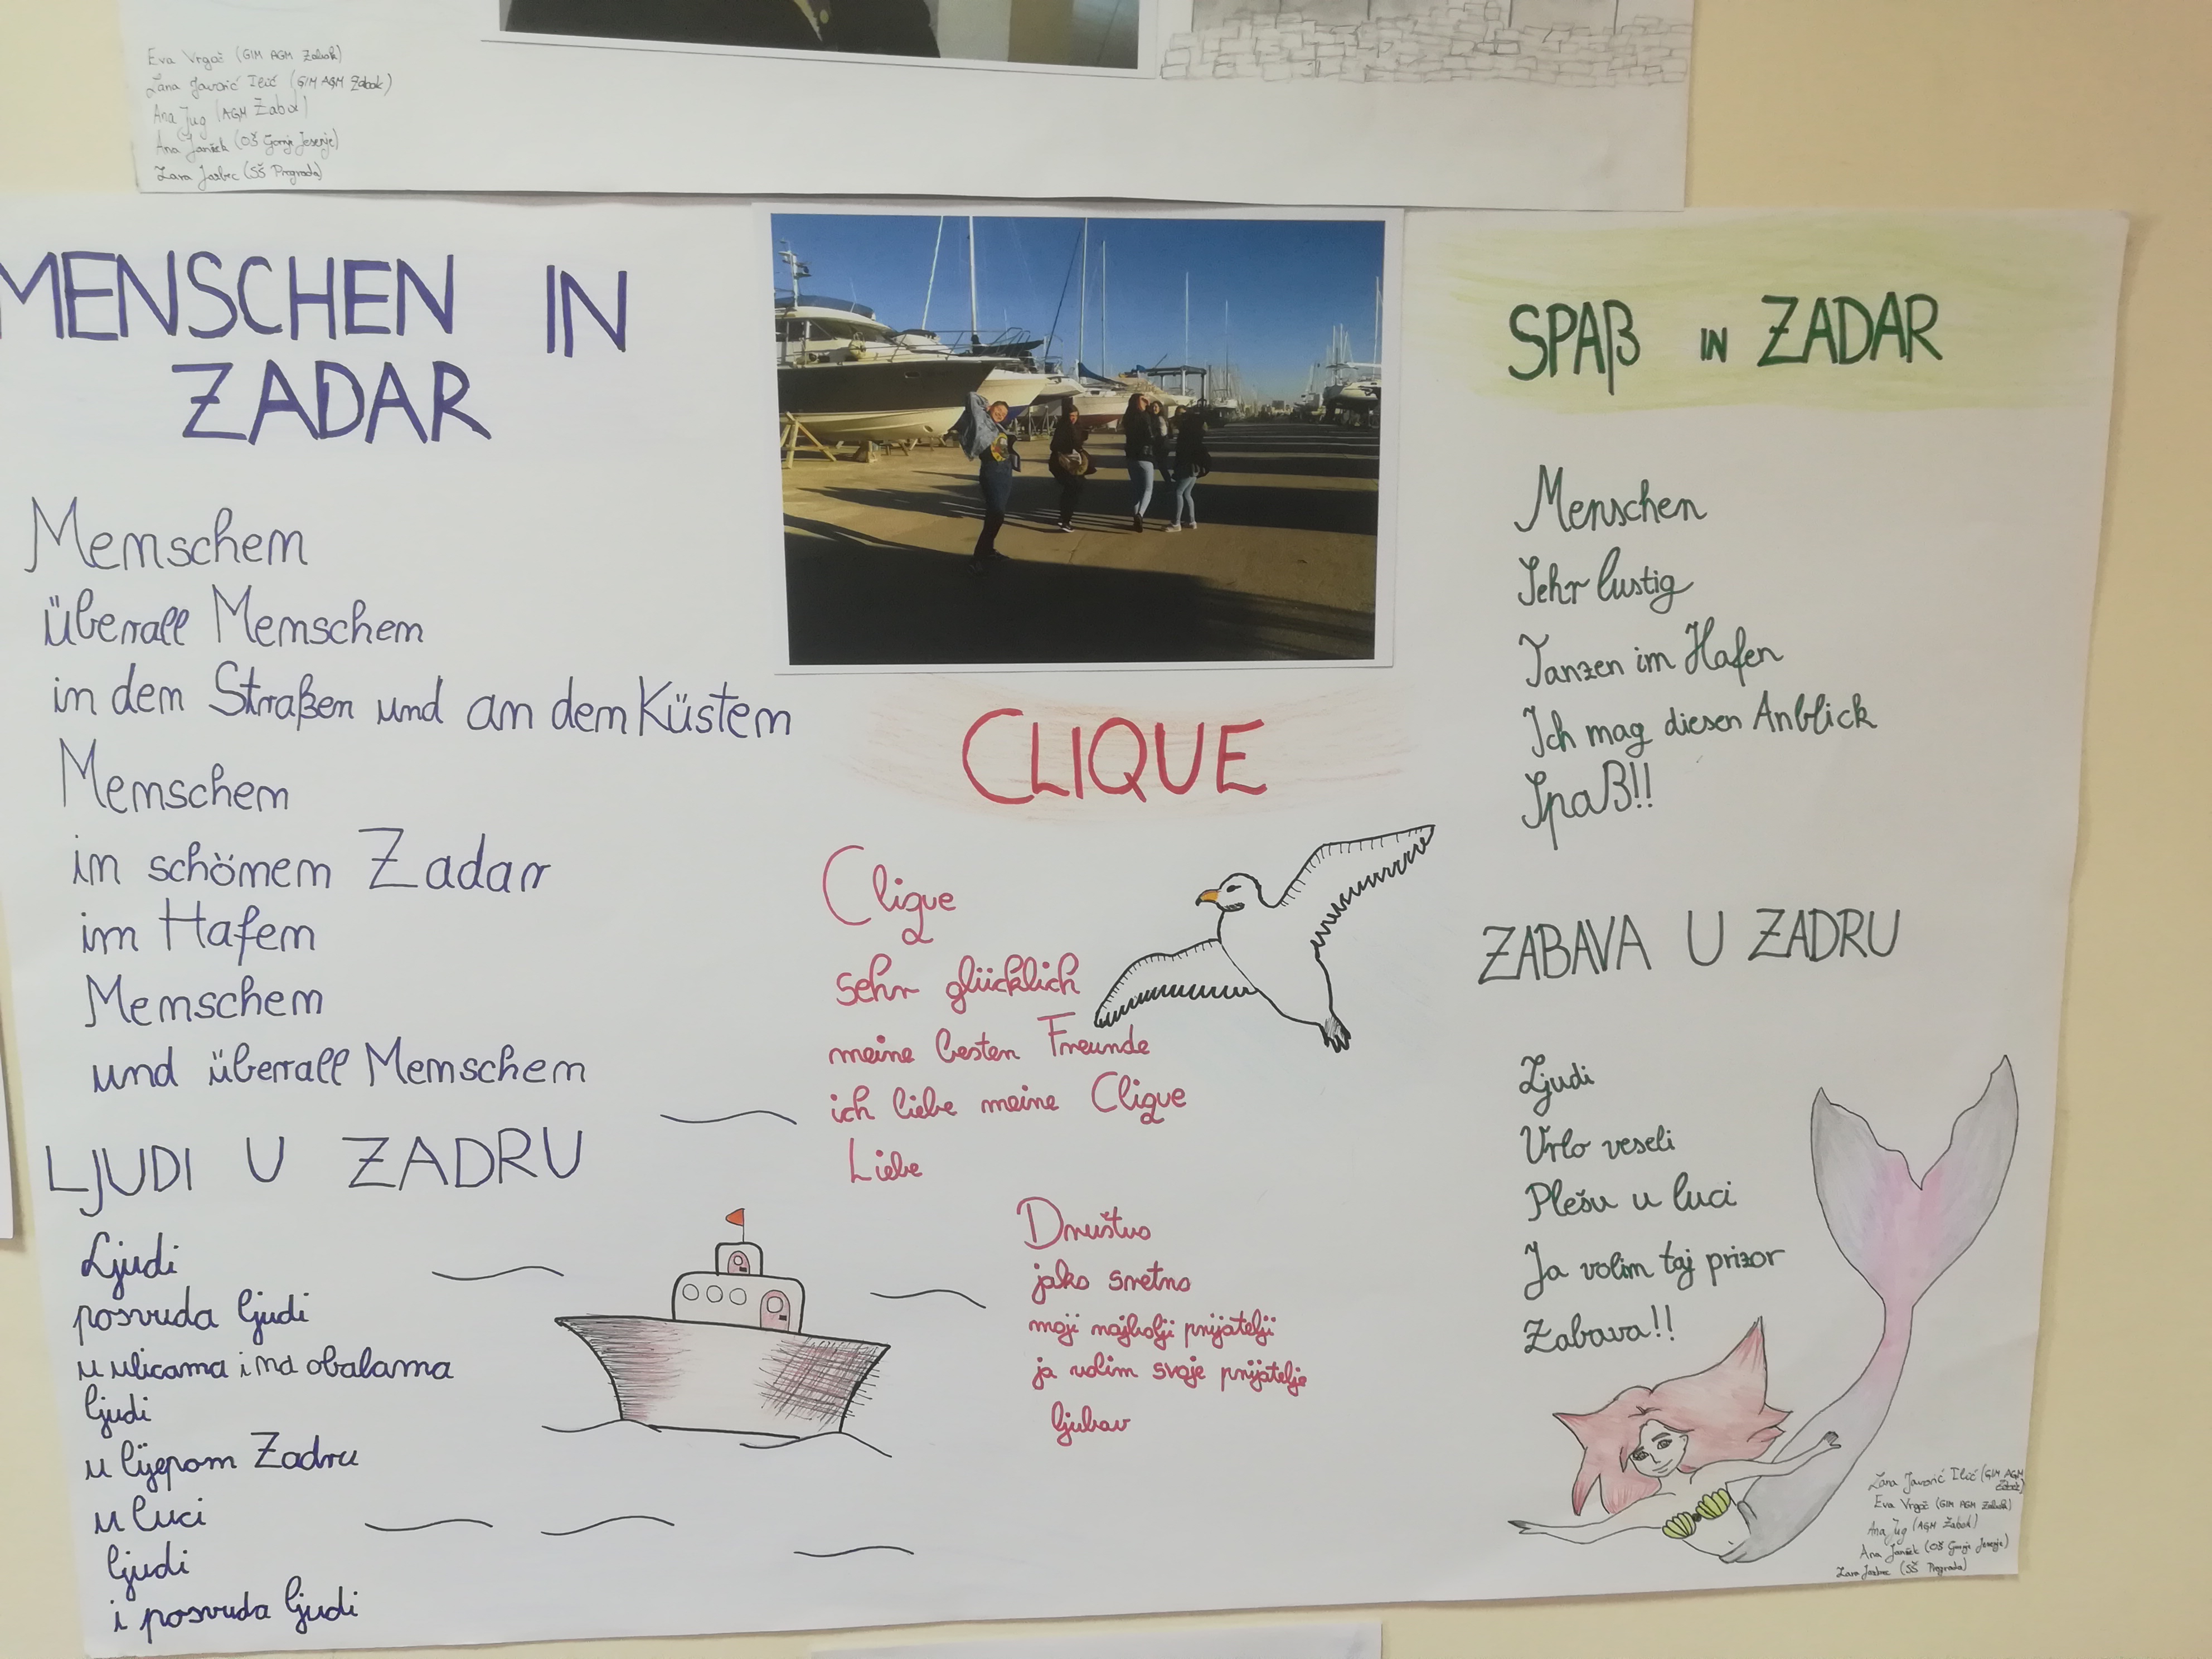 Eva Vrgoč (GIM AGM Zabok)
Lana Javorić Ilić (GIM AGM Zabok)
Ana Jug (AGM Zabok)
Ana (OŠ Gornje Jesenje)
(SŠ Pregrada)
MENSCHEN IN
ZADAR
Menschen
überall Menschen
in den Straßen und an den Küsten
Menschen
in schönem Zadar
im Hafen
Menschen
und überall Menschen
LJUDI U ZADRU
Ljudi
posvuda ljudi
u ulicama i na obalama
ljudi
u lijepom Zadru
u luci
ljudi
i posvuda ljudi
CLIQUE
Clique
sehr glücklich
meine besten Freunde
ich liebe meine Clique
Liebe
Društvo
jako sretno
moji najbolji prijatelji
ja volim svoje prijatelje
ljubav
SPAß IN ZADAR
Menschen
Sehr lustig
Tanzen im Hafen
Ich mag diesen Anblick
Spaß!!
ZABAVA U ZADRU
Ljudi
Vrlo veseli
Plešu u luci
Ja volim taj prizor
Zabava!!
Lana Javorić Ilić (GIM AGM
Zabok)
Eva Vrgoč (GIM AGM Zabok)
Ana Jug (AGM Zabok)
Ana (OŠ Gornje Jesenje)
(SŠ Pregrada)